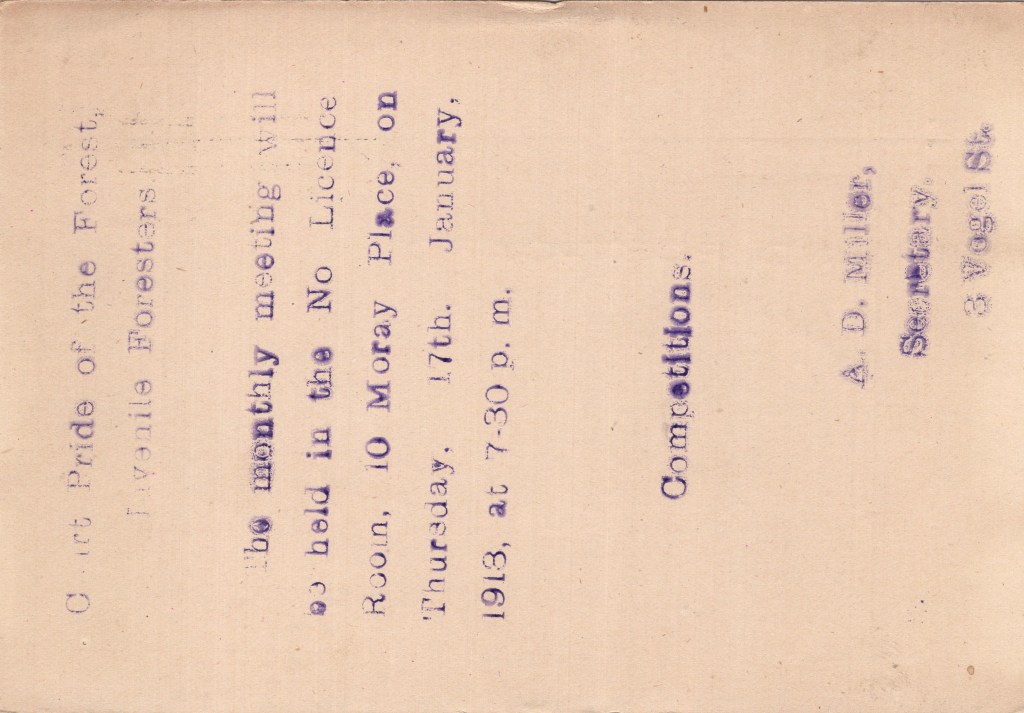 Court Pride of the Forest,
Juvenile Foresters
The monthly meeting will
be held in the No Licence
Room, 10 Moray Place, on
Thursday, 17th. January,
1918, at 7-30 p. m.
Competitions.
A. D. Miller,
Secretary.
3 Vogel St.